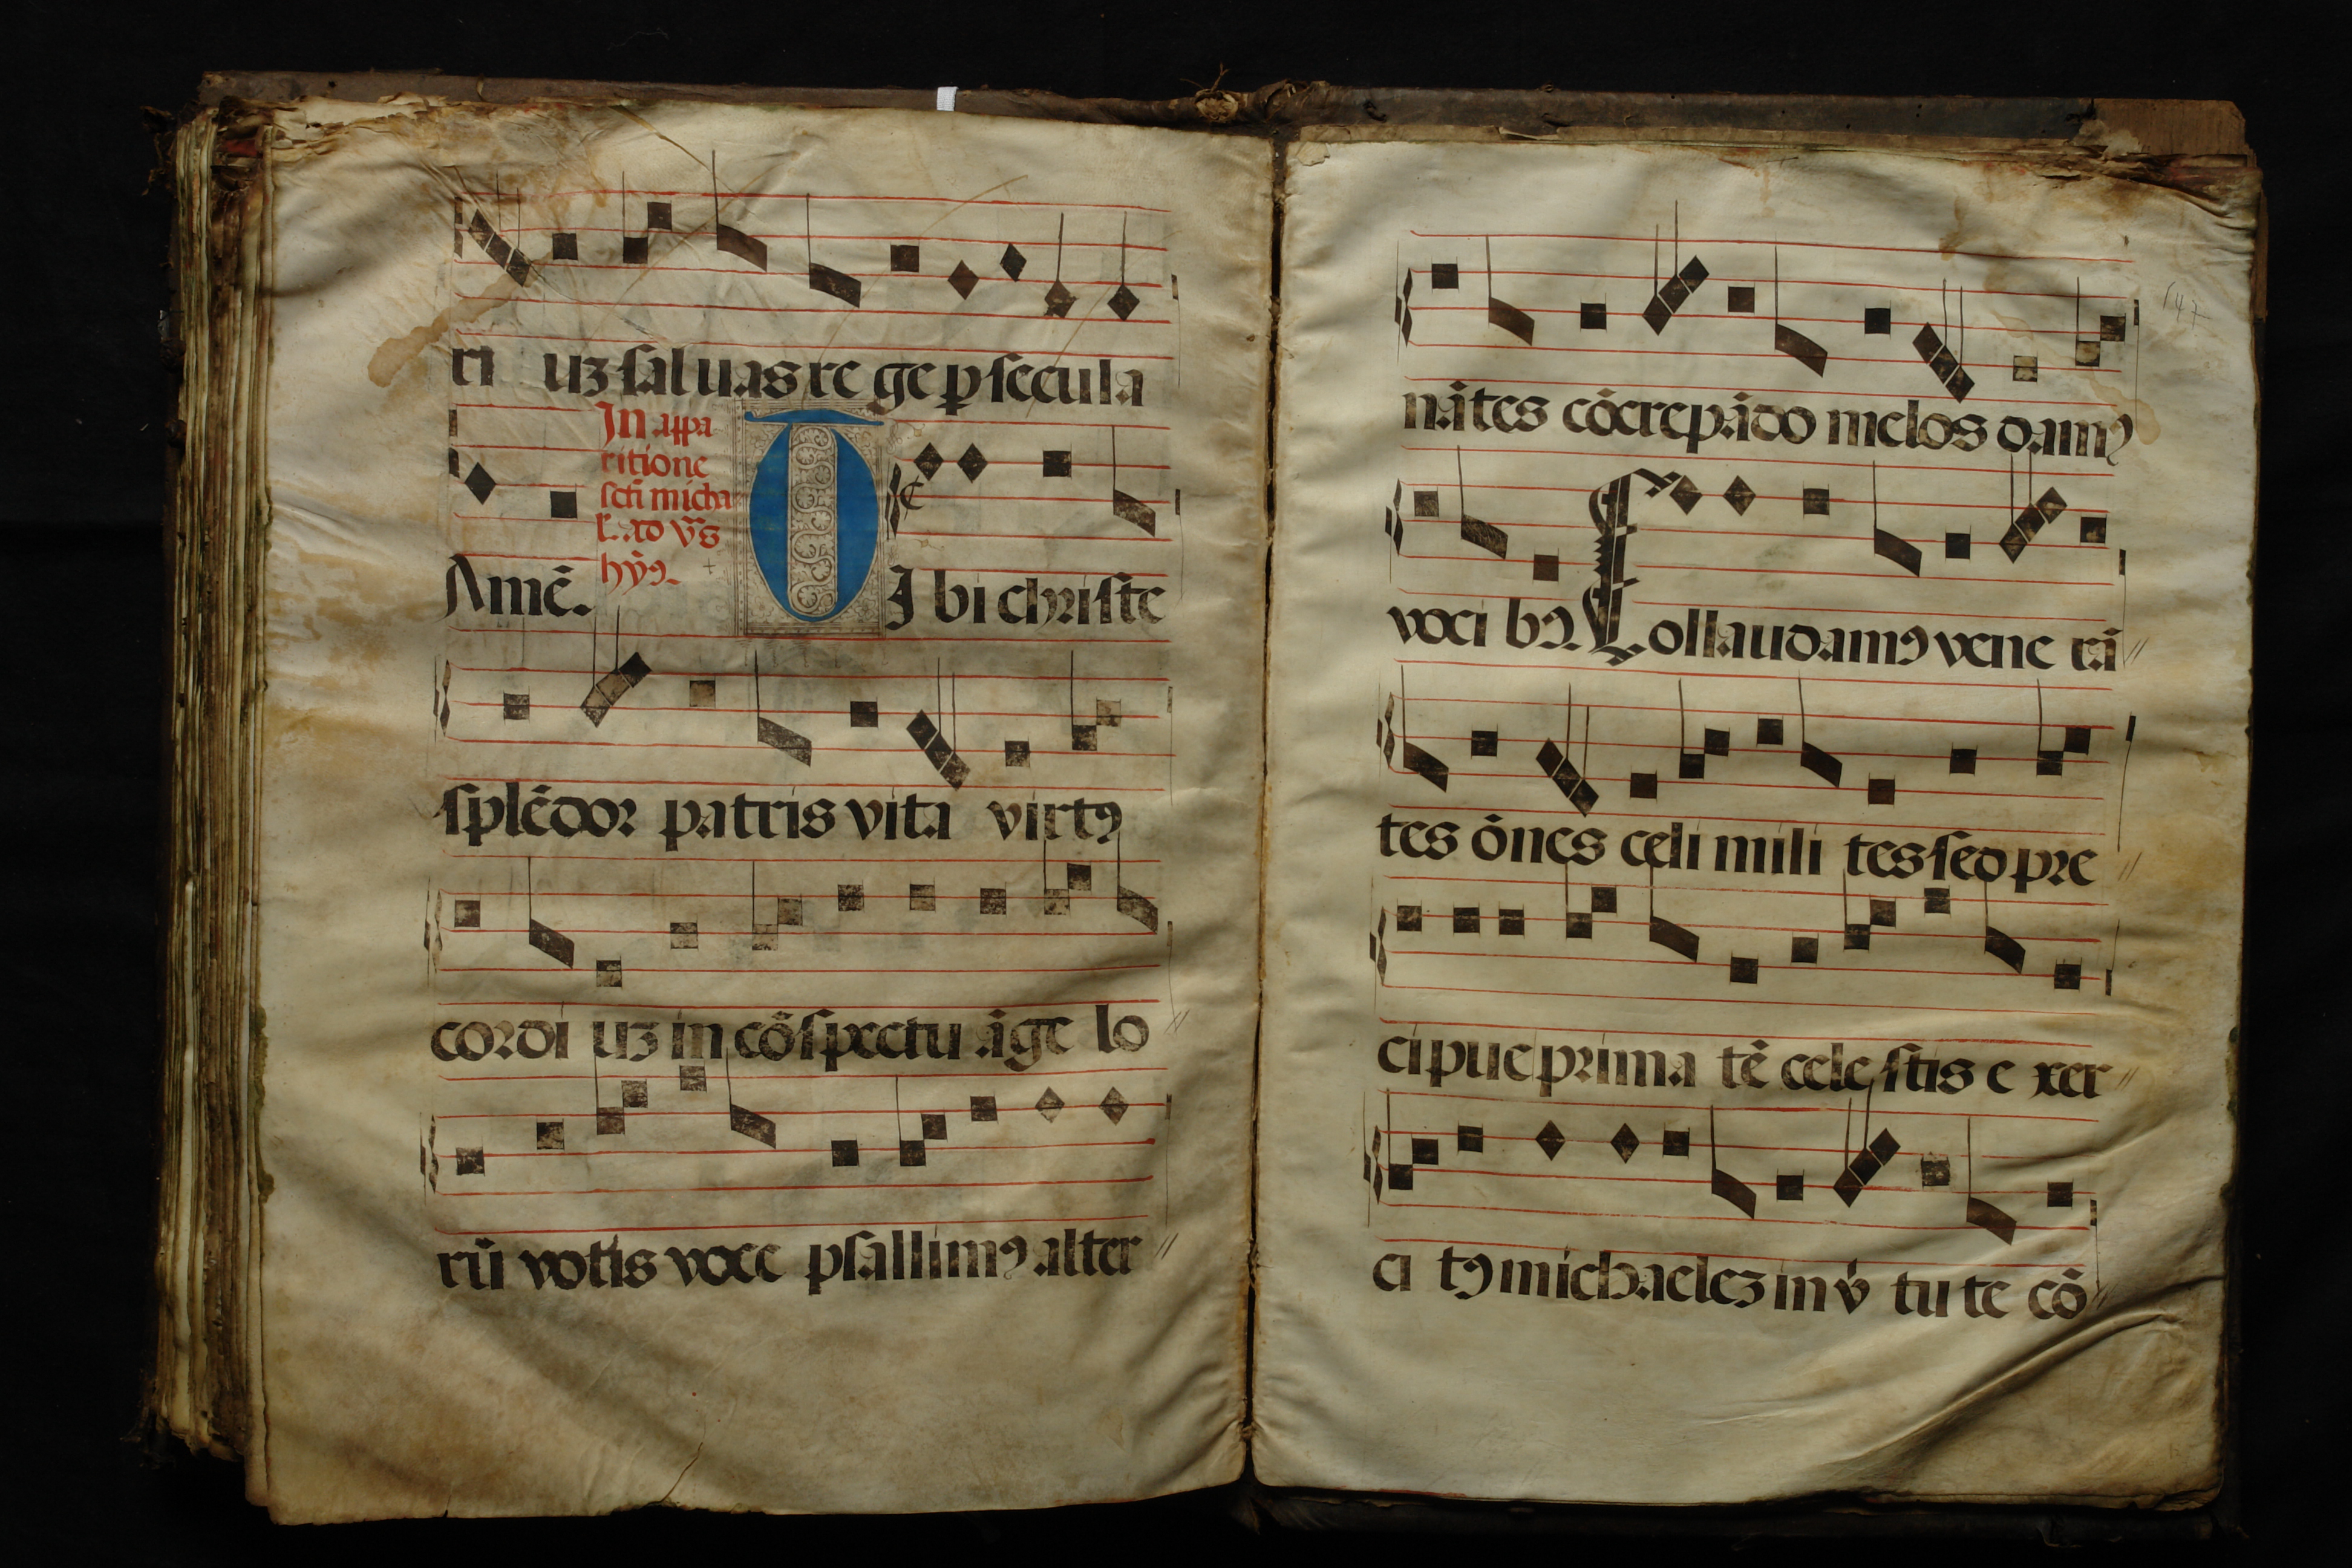 ri uz saluas rege p secula
In appa
ritione
scti micha
el. ad vr̃s
hỹ9.
Amē. TI bi christe
splēdor patris vita virt9
cordi uz in cōspectu āge lo
rū votis voce psallim9 alter
147
nātes cōcrepādo melos dam9
voci b9. Collaudam9 vene rā
tes ōnes celi mili tes sed pre
cipue prima tē cele stis e xer
ci t9 michaelez in v̄ tu te cō